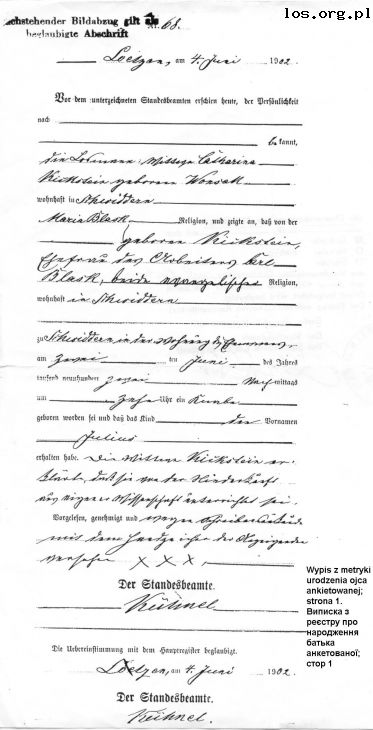 los.org.pl
achstehender Bildabzug gilt als
beglaubigte Abschrift
Nr. 68.
Loetzen, am 4. Juni 1902.
Vor dem unterzeichneten Standesbeamten erschien heute, der Persönlichkeit
nach
bekannt,
die Losmann-Wittwe Catharina
geborene
wohnhaft in Schwiddern
Religion, und zeigte an, daß von der
Maria Blask
geborene
Ehefrau des Arbeiters Carl
Blask, beide evangelischer Religion,
wohnhaft in Schwiddern
zu Schwiddern in der Wohnung des Ehemannes,
am zwei ten Juni des Jahres
tausend neunhundert zwei Nachmittags
um zehn Uhr ein Knabe
geboren worden sei und daß das Kind den Vornamen
Julius
erhalten habe. Die Wittwe er-
klärt, daß sie von der Niederkunft
aus eigener Wissenschaft unterrichtet sei.
Vorgelesen, genehmigt und wegen Schreibensunkunde
mit dem Handzeichen der Anzeigenden
versehen X X X,
Der Standesbeamte.
Kühnel
Die Uebereinstimmung mit dem Hauptregister beglaubigt.
Loetzen, am 4. Juni 1902.
Der Standesbeamte.
Kühnel.
Wypis z metryki
urodzenia ojca
ankietowanej;
strona 1.
Виписка з
реєстру про
народження
батька
анкетованої;
стор 1